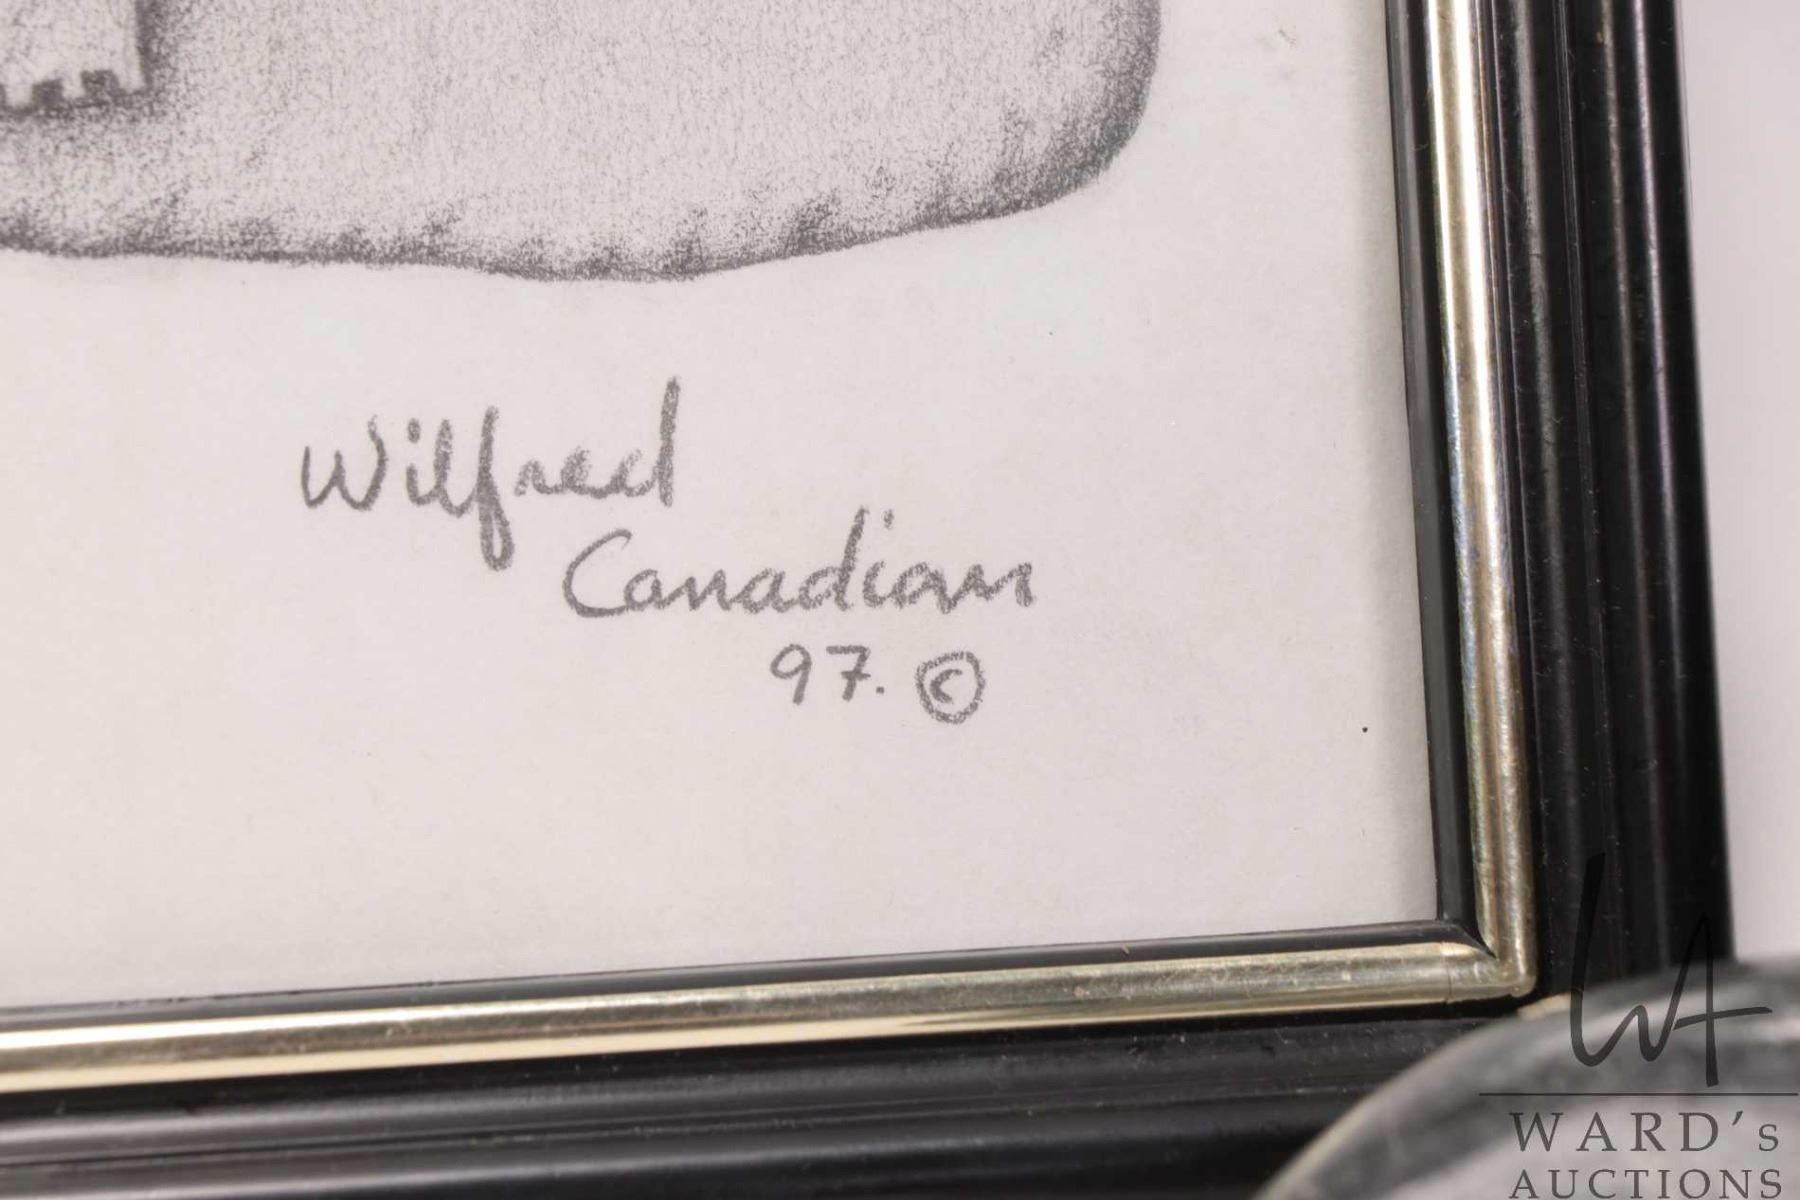 Wilfred
Canadian
97. ©
WA
WARD's
AUCTIONS